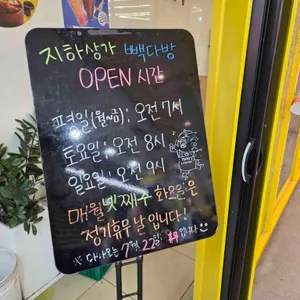 지하상가 빽다방
OPEN 시간
평일(월~금): 오전 7시
토요일: 오전 8시
일요일: 오전 9시
매월 넷째주 화요일은
정기휴무 날 입니다!
※ 다가오는 7월 22일 휴무입니다